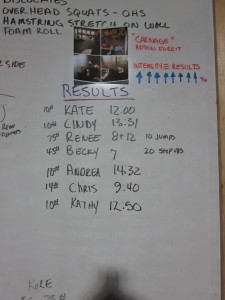 DISLOCATES
OVERHEAD SQUATS - OHS
HAMSTRING STRETCH ON WALL
FOAM ROLL
"CARNAGE"
INTENSITY = RESULTS
SIDE
RESULTS
10# KATE 12:00
10# CINDY 13:51
75# RENEE 8+12 10 JUMPS
45# BECKY 7 20 STEP UPS
10# ANDREA 14:32
14# CHRIS 9:40
10# KATHY 12:50